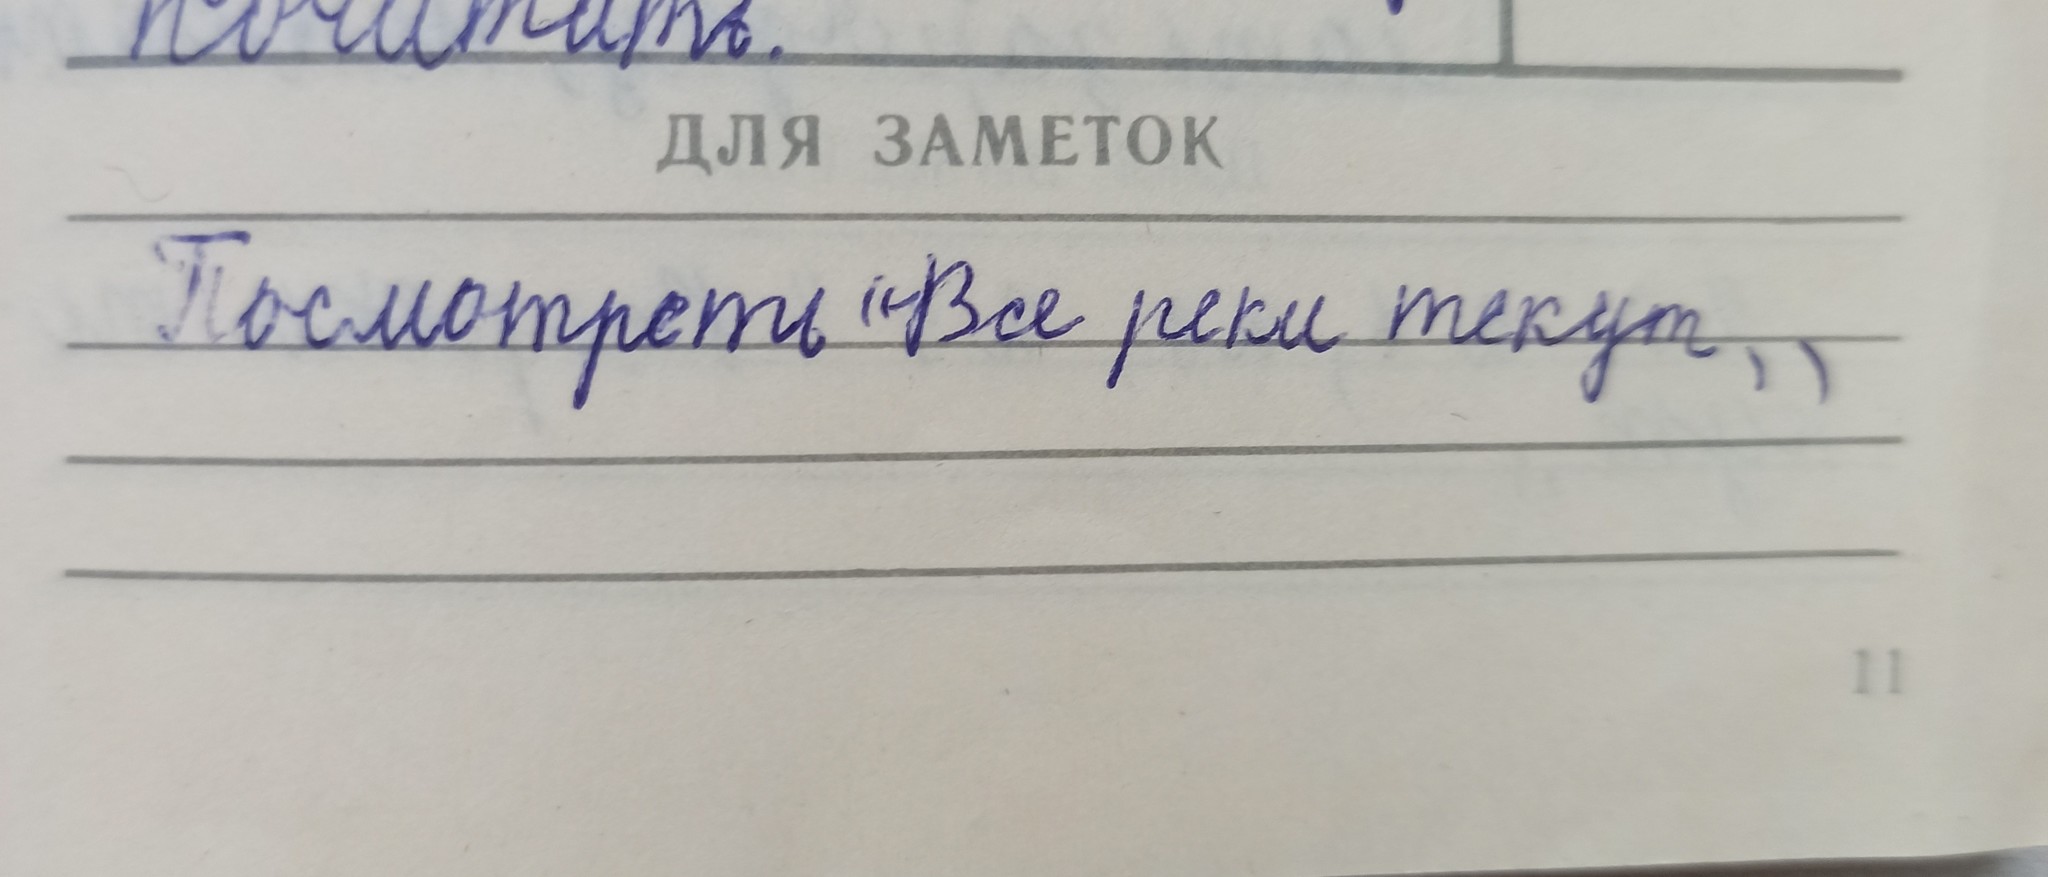 почитать.
ДЛЯ ЗАМЕТОК
Посмотреть "Все реки текут"
11